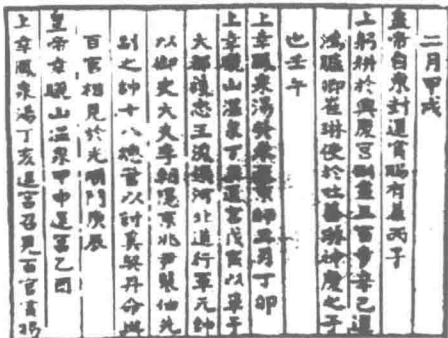 二月甲戌
皇帝自東封還賞賜有差丙子
上躬耕於興慶宮側盡三百步辛巳遣
鴻臚卿崔琳使於吐蕃琳神慶之子
也壬午
上幸鳳泉湯癸未還京師三月丁卯
上幸驪山溫泉丁亥還宮戊寅以單于
大都護忠王浚領河北道行軍元帥
以御史大夫李朝隱京兆尹裴伷先
副之帥十八總管以討奚契丹命與
百官相見於光順門庚辰
皇帝幸驪山溫泉甲申還宮乙酉
上幸鳳泉湯丁亥還宮召見百官言